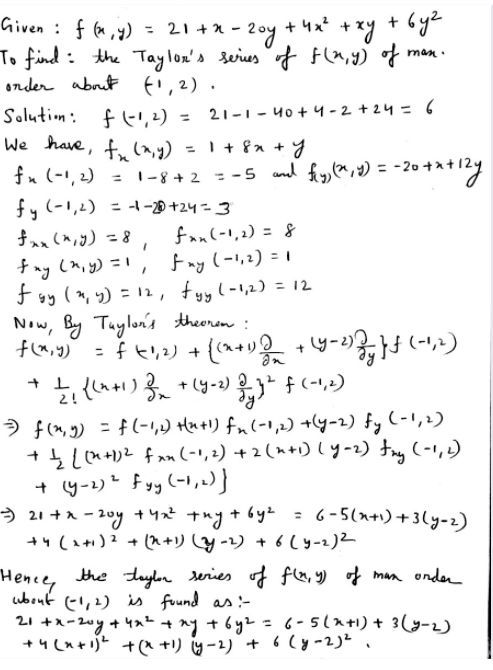 Given : f(x,y) = 21 + x - 20y + 4x² + xy + 6y²
To find : the Taylor's series of f(x,y) of max.
order about (-1,2) .
Solution : f(-1,2) = 21-1-40+4-2+24 = 6
We have, fₓ(x,y) = 1 + 8x + y
fₓ(-1,2) = 1-8+2 = -5 and f(y)(x,y) = -20+x+12y
f_y(-1,2) = -1-20+24 = 3
fₓₓ(x,y) = 8 , fₓₓ(-1,2) = 8
f_xy(x,y) = 1 , f_xy(-1,2) = 1
f_yy(x,y) = 12 , f_yy(-1,2) = 12
Now, By Taylor's theorem :
f(x,y) = f(-1,2) + {(x+1) ∂/∂x + (y-2) ∂/∂y} f(-1,2)
+ 1/2! {(x+1) ∂/∂x + (y-2) ∂/∂y}² f(-1,2)
⇒ f(x,y) = f(-1,2) + (x+1) fₓ(-1,2) + (y-2) f_y(-1,2)
+ 1/2 {(x+1)² fₓₓ(-1,2) + 2(x+1)(y-2) f_xy(-1,2)
+ (y-2)² f_yy(-1,2)}
⇒ 21 + x - 20y + 4x² + xy + 6y² = 6-5(x+1)+3(y-2)
+4(x+1)² + (x+1)(y-2) + 6(y-2)²
Hence, the taylor series of f(x,y) of max order
about (-1,2) is found as :-
21 + x - 20y + 4x² + xy + 6y² = 6-5(x+1) + 3(y-2)
+4(x+1)² + (x+1)(y-2) + 6(y-2)² .